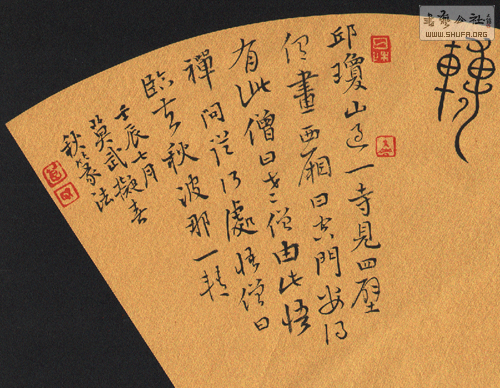 轉
邱瓊山過一寺見四壁
俱畫西廂曰空門安得
有此僧曰老僧由此悟
禪問從何處悟僧曰
臨去秋波那一轉
壬辰七月
莫武擬春
秋篆法
WWW.SHUFA.ORG